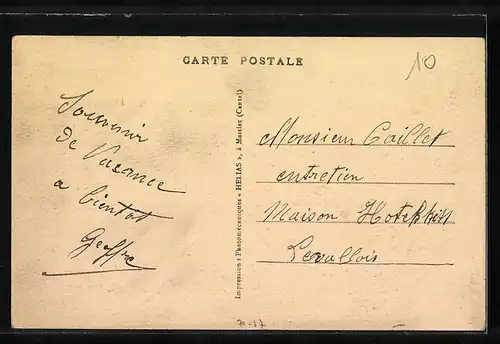 CARTE POSTALE
10
Souvenir
de Vacance
a bientot
Geoffre
Impressions Photomécaniques « HELIAS », à Massiac (Cantal)
Monsieur Caillet
entretien
Maison Hotchkiss
Levallois